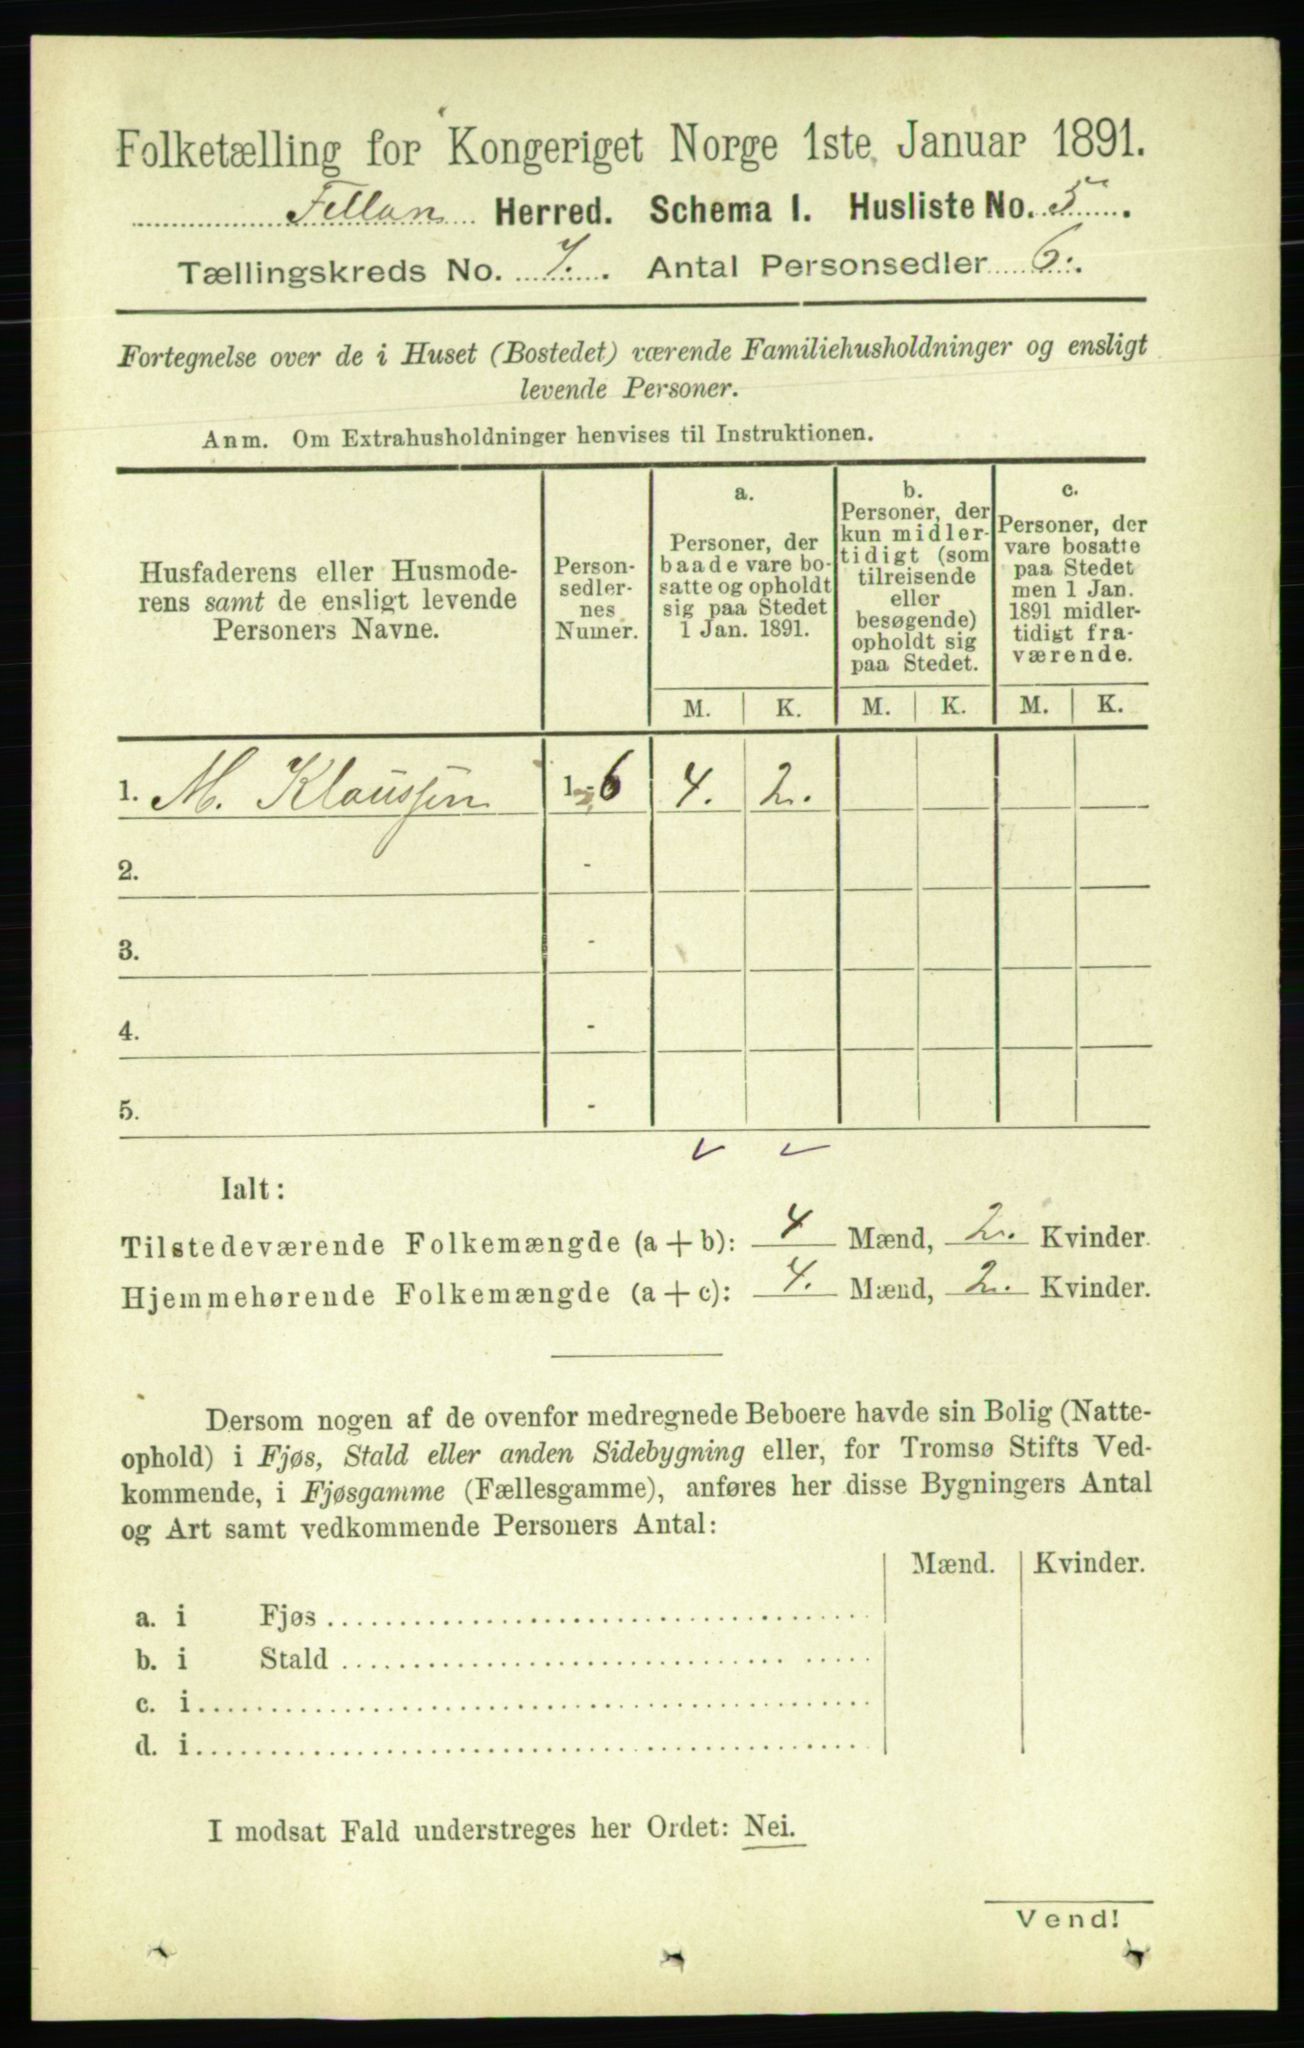 Folketælling for Kongeriget Norge 1ste Januar 1891.
Fillan Herred. Schema I. Husliste No. 5.
Tællingskreds No. 7. Antal Personsedler 6.
Fortegnelse over de i Huset (Bostedet) værende Familiehusholdninger og ensligt
levende Personer.
Anm. Om Extrahusholdninger henvises til Instruktionen.
Husfaderens eller Husmode-
rens samt de ensligt levende
Personers Navne.
Person-
sedler-
nes
Numer.
a.
Personer, der
baade vare bo-
satte og opholdt
sig paa Stedet
1 Jan. 1891.
b.
Personer, der
kun midler-
tidigt (som
tilreisende
eller
besøgende)
opholdt sig
paa Stedet.
c.
Personer, der
vare bosatte
paa Stedet
men 1 Jan.
1891 midler-
tidigt fra-
værende.
M. K. M. K. M. K.
1. M. Klaussen 1-6 4. 2.
2. -
3. -
4. -
5. -
Ialt:
Tilstedeværende Folkemængde (a + b): 4 Mænd, 2. Kvinder.
Hjemmehørende Folkemængde (a + c): 4. Mænd, 2. Kvinder.
Dersom nogen af de ovenfor medregnede Beboere havde sin Bolig (Natte-
ophold) i Fjøs, Stald eller anden Sidebygning eller, for Tromsø Stifts Ved-
kommende, i Fjøsgamme (Fællesgamme), anføres her disse Bygningers Antal
og Art samt vedkommende Personers Antal:
Mænd. Kvinder.
a. i Fjøs
b. i Stald
c. i
d. i
I modsat Fald understreges her Ordet: Nei.
Vend!